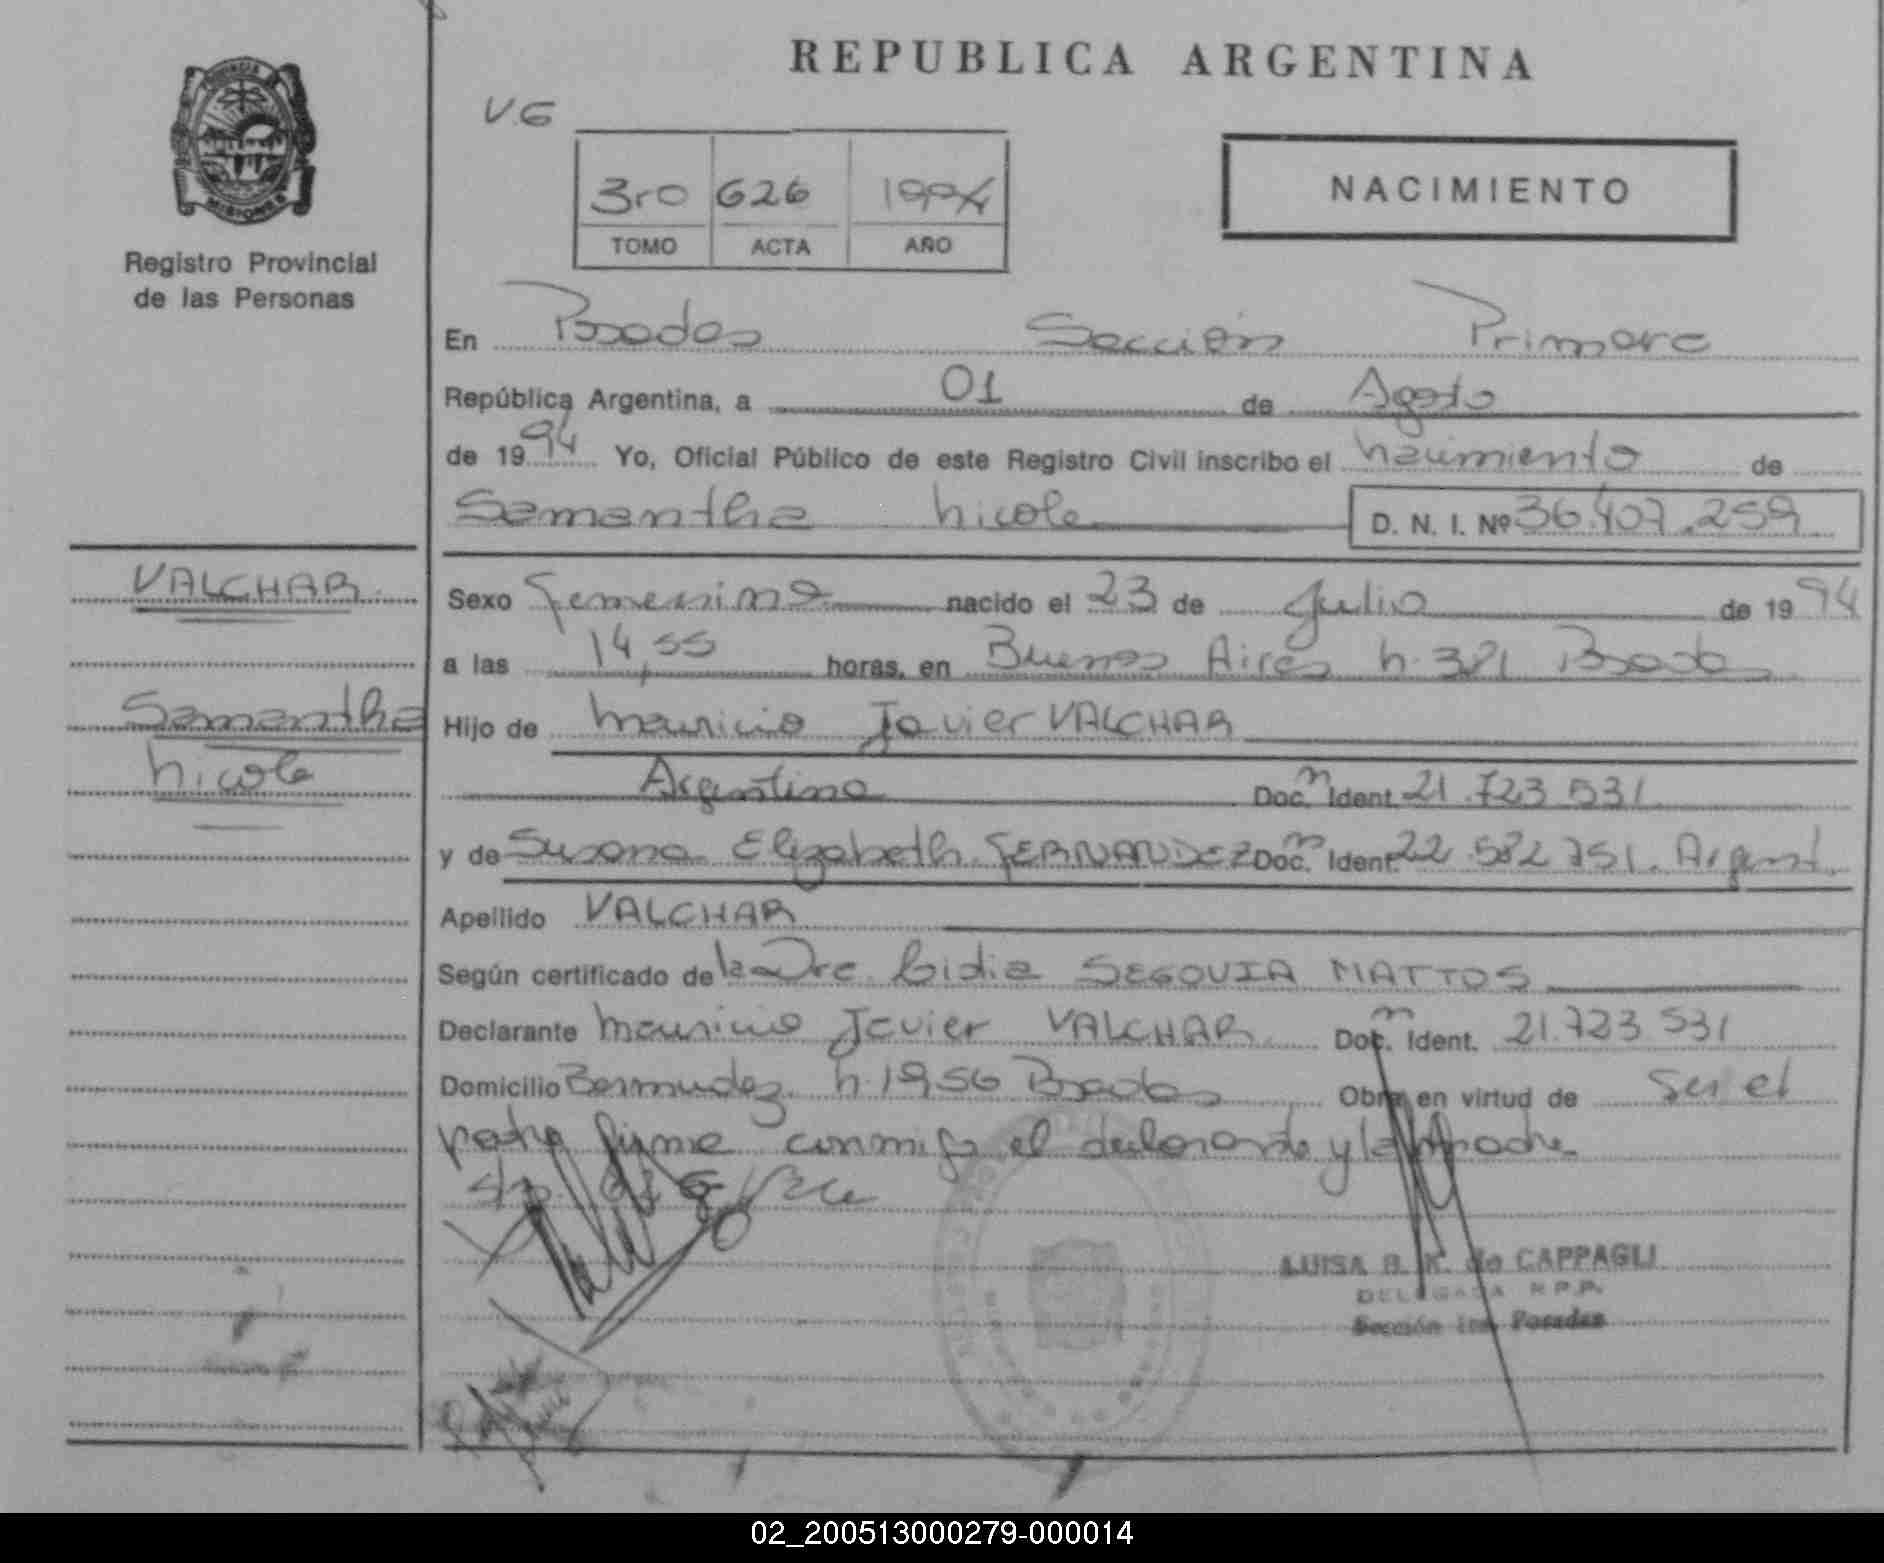 REPUBLICA ARGENTINA
PROVINCIA DE
MISIONES
Registro Provincial
de las Personas
V.G
3ro 626 1994
TOMO ACTA AÑO
NACIMIENTO
En Posadas Sección Primera
República Argentina, a 01 de Agosto
de 1994 Yo, Oficial Público de este Registro Civil inscribo el nacimiento de
Samantha Nicole D. N. I. Nº 36.407.259
VALCHAR
Samantha
Nicole
Sexo Femenino nacido el 23 de Julio de 1994
a las 14,55 horas, en Buenos Aires N. 381 Posadas
Hijo de Mauricio Javier VALCHAR
Argentino Doc. Ident. 21.723.531
y de Susana Elizabeth FERNANDEZ Doc. Ident. 22.582.751. Argent.
Apellido VALCHAR
Según certificado de la Dra. Lidia SEGOVIA MATTOS
Declarante Mauricio Javier VALCHAR Doc. Ident. 21.723.531
Domicilio Bermudez N. 1956 Posadas Obra en virtud de ser el
padre firma conmigo el declarante y la madre
LUISA B. K. de CAPPAGLI
DELEGADA R.P.P.
Sección 1ra. Posadas
02_200513000279-000014